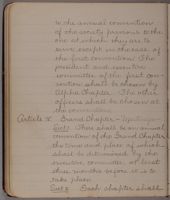 to the annual convention
of the society previous to the
one at which they are to
serve, except in the case of
the first convention. The
president and executive
committee of the first con-
vention shall be chosen by
Alpha Chapter. The other
officers shall be chosen at
the convention.
Article X. Grand Chapter -
Sect 1. There shall be an annual
convention of the Grand Chapter
the time and place of which
shall be determined by the
executive committee at least
three months before it is to
take place.
Sect 2. Each chapter shall